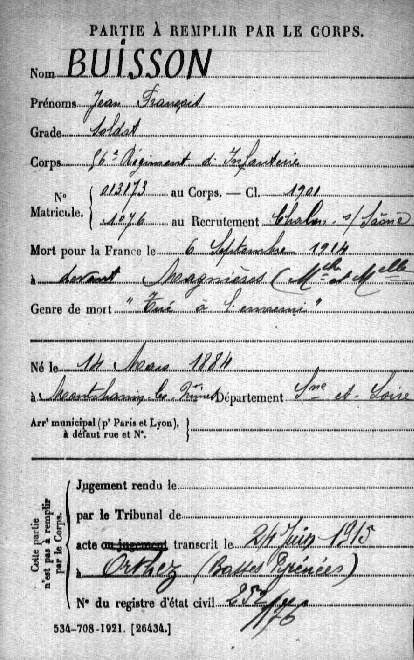 PARTIE À REMPLIR PAR LE CORPS.
Nom BUISSON
Prénoms Jean François
Grade soldat
Corps 56e Régiment d'Infanterie
N° Matricule. { 013173 au Corps. — Cl. 1901
1076 au Recrutement Chalon s/Saône
Mort pour la France le 6 Septembre 1914
à devant Magnières (Mthe et Melle
Genre de mort "Tué à l'ennemi"
Né le 14 Mars 1884
à Montchanin les Mines Département Sne et Loire
Arrt municipal (pr Paris et Lyon),
à défaut rue et N°.
Cette partie n'est pas à remplir par le Corps.
Jugement rendu le
par le Tribunal de
acte ou jugement transcrit le 24 Juin 1915
à Orthez (Basses Pyrénées)
N° du registre d'état civil 252
534-708-1921. [26434.]